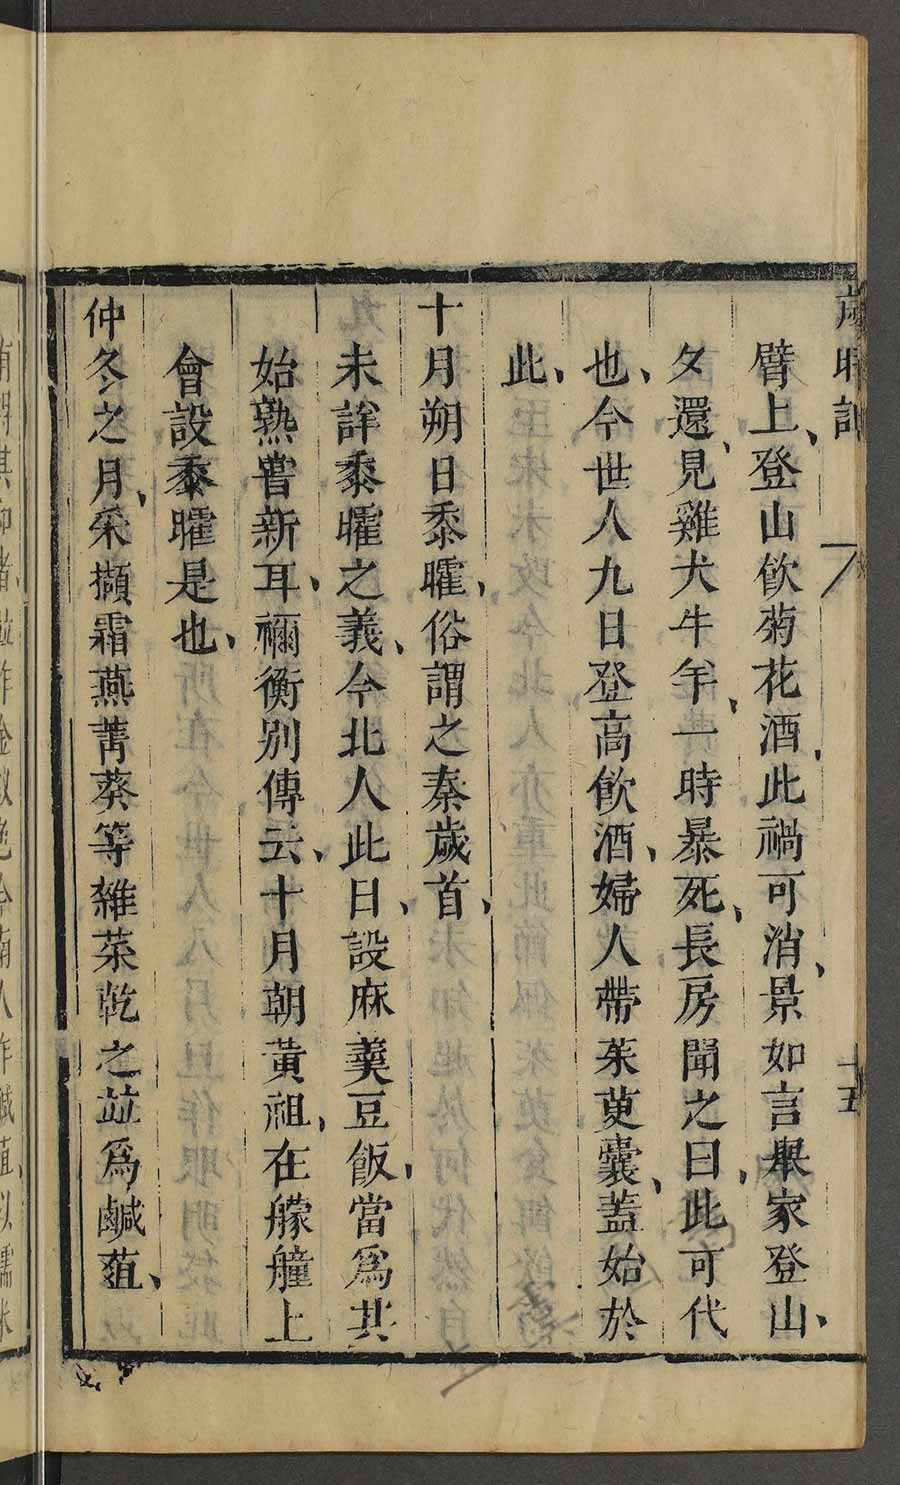 歲時記
十五
臂上、登山飮菊花酒、此禍可消、景如言舉家登山、
夕還、見雞犬牛羊、一時暴死、長房聞之曰、此可代
也、今世人九日登高飮酒、婦人帶茱萸囊、蓋始於
此、
十月朔日黍臛、俗謂之秦歲首、
未詳黍臛之義、今北人此日、設麻羹豆飯、當爲其
始熟嘗新耳、禰衡別傳云、十月朝黃祖、在艨艟上
會設黍臛是也、
仲冬之月、采擷霜燕菁葵等雜菜乾之並爲鹹葅、